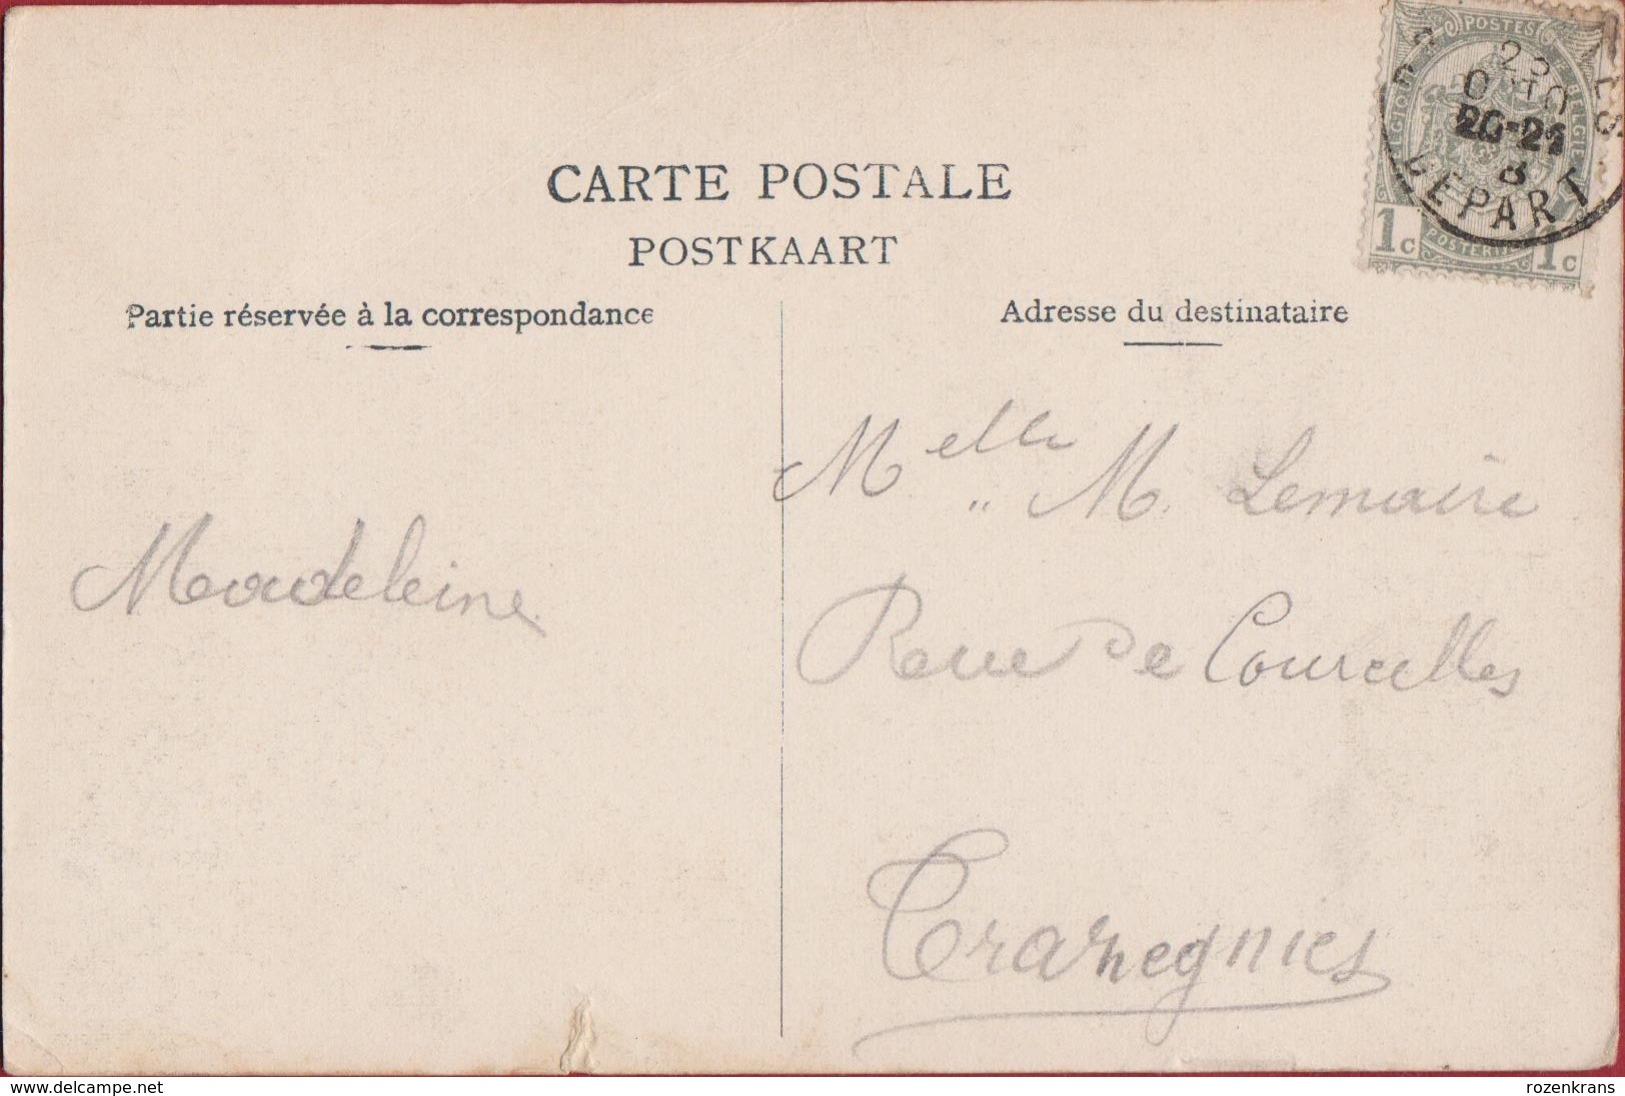 CARTE POSTALE
POSTKAART
Partie réservée à la correspondance
Adresse du destinataire
POSTES
BELGIQUE
BELGIE
20-21
8
DEPART
1c
1c
Melle M. Lemaire
Madeleine
Rue de Courcelles
Trazegnies
www.delcampe.net
rozenkrans